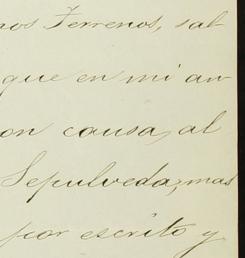 nos Terrenos, sal
que en mi an
on causa, al
Sepulveda, mas
por escrito y